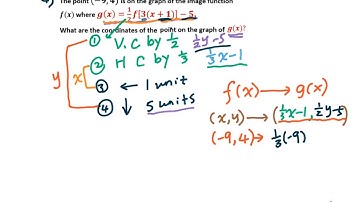 The point (−9, 4) is on the graph of the image function
f(x) where g(x) = ½f[3(x + 1)] − 5.
What are the coordinates of the point on the graph of g(x)?
① V.C by ½ ½y-5
② H C by ⅓ ⅓x-1
③ ← 1 unit
④ ↓ 5 units
y x
f(x) → g(x)
(x,y) → (⅓x-1, ½y-5)
(-9,4) → ⅓(-9)